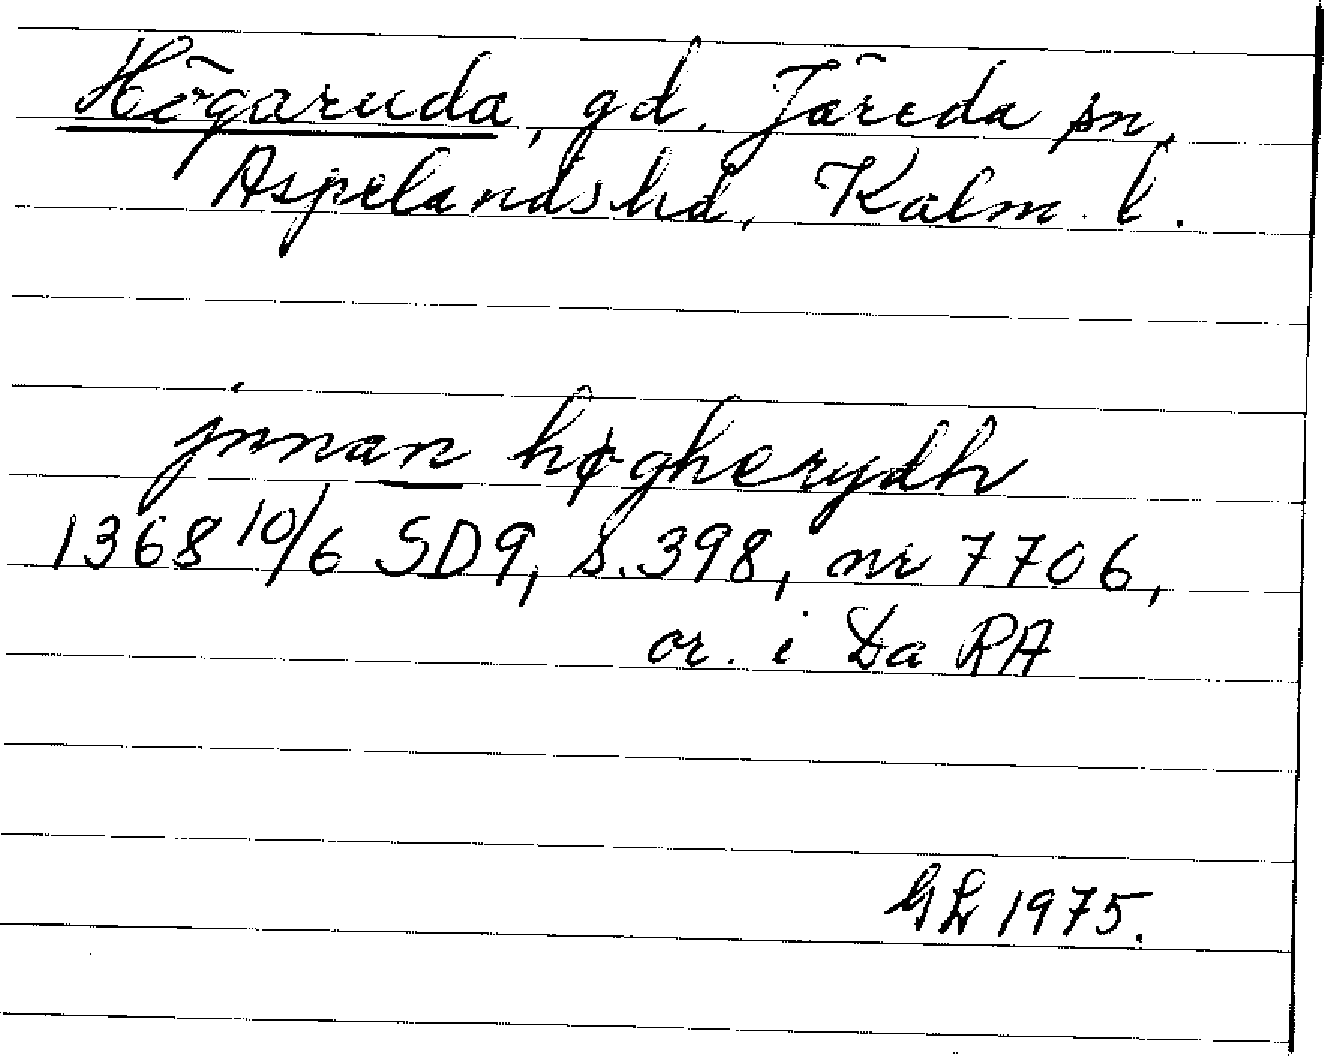 Högaruda, gd. Järeda sn,
Aspelands hd, Kalm. l.
jnnan høgherydh
1368 10/6 SD9, s. 398, nr 7706,
or. i Da RA
GL 1975.